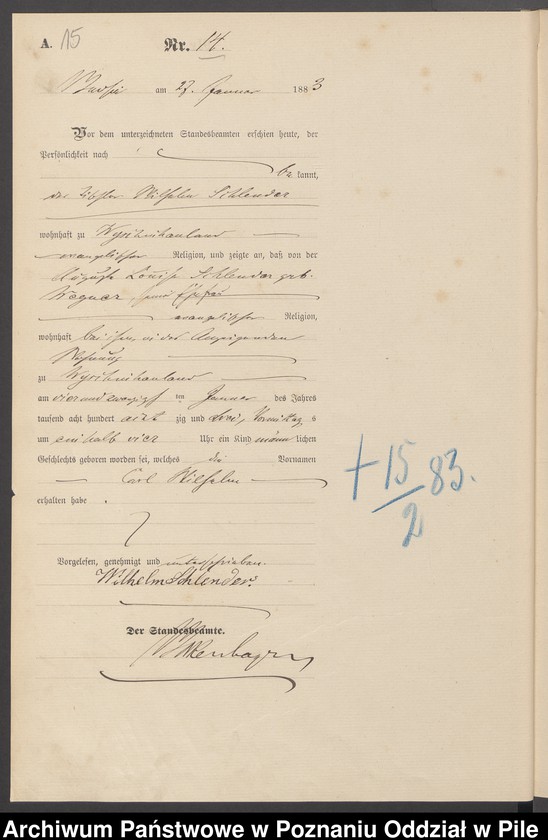 A. 15 Nr. 14.
am 27. Januar 1883
Vor dem unterzeichneten Standesbeamten erschien heute, der
Persönlichkeit nach
be kannt,
der Wilhelm Schlender
wohnhaft zu
evangelischer Religion, und zeigte an, daß von der
Auguste Louise Schlender geb.
Wegner, seiner Ehefrau
evangelischer Religion,
wohnhaft bei ihm, in des Anzeigenden
Wohnung
zu
am vierundzwanzigsten ten Januar des Jahres
tausend acht hundert acht zig und drei, Vormittag s
um ein halb vier Uhr ein Kind männ lichen
Geschlechts geboren worden sei, welches die Vornamen
Carl Wilhelm
erhalten habe .
Vorgelesen, genehmigt und unterschrieben.
Wilhelm Schlender.
Der Standesbeamte.
+ 15/2 83.
Archiwum Państwowe w Poznaniu Oddział w Pile